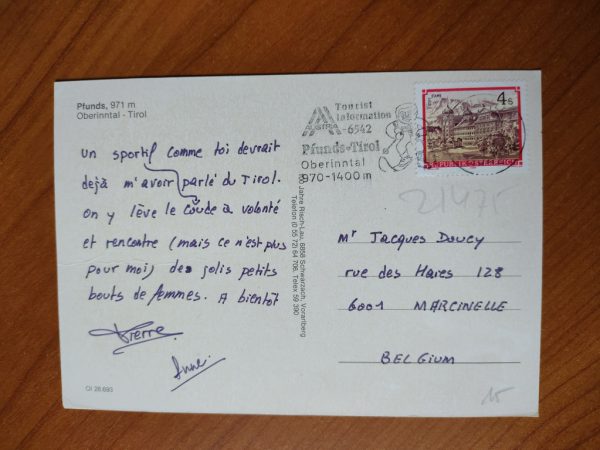 Pfunds, 971 m
Oberinntal - Tirol
un sportif comme toi devrait
déjà m'avoir parlé du Tirol.
On y lève le coude à volonté
et rencontre (mais ce n'est plus
pour moi) des jolis petits
bouts de femmes. A bientôt
Pierre
Anne.
Ol 26.693
100 Jahre Risch-Lau, 6858 Schwarzach, Vorarlberg
Telefon (0 55 72) 64 708, Telex 59 390
Tourist
Information
A-6542
Pfunds-Tirol
Oberinntal
970-1400 m
4 S
REPUBLIK ÖSTERREICH
Mr Jacques Doucy
rue des Haies 128
6001 MARCINELLE
BELGIUM
15